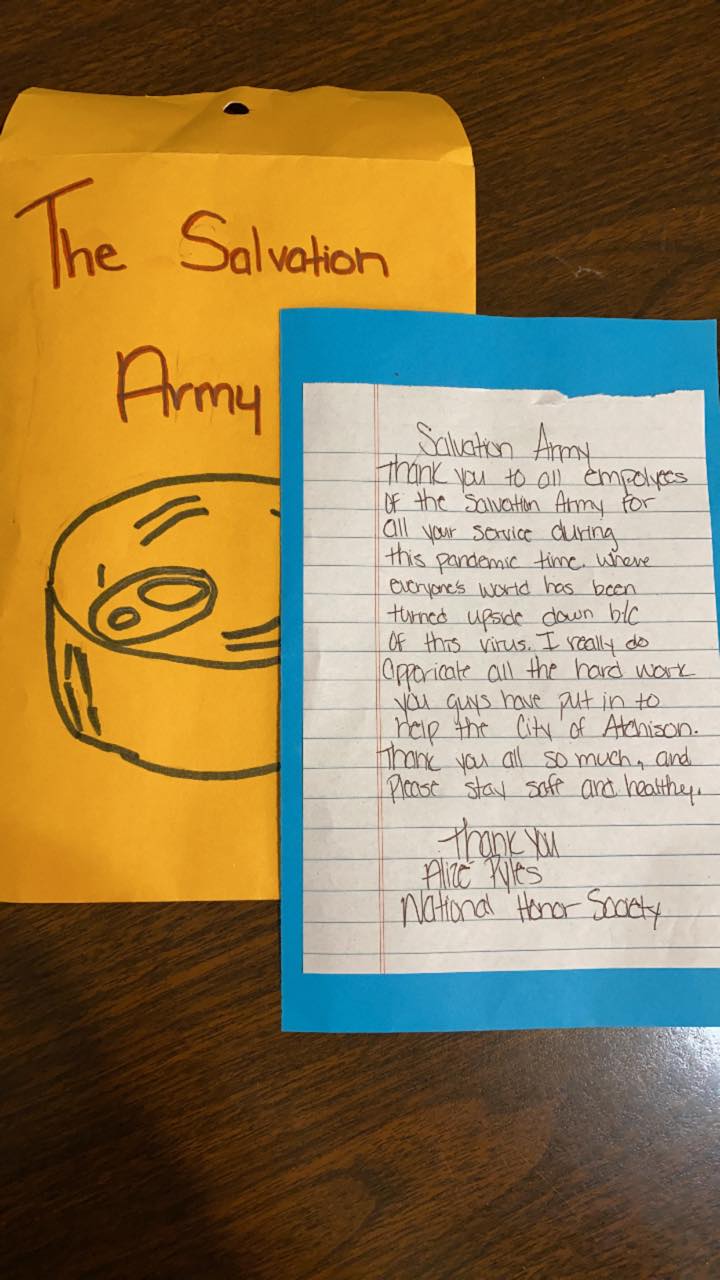 The Salvation
Army
Salvation Army
Thank you to all empolyees
of the Salvation Army for
all your service during
this pandemic time. where
everyone's world has been
turned upside down b/c
of this virus. I really do
Apporicate all the hard work
you guys have put in to
help the City of Atchison.
Thank you all so much, and
Please stay safe and healthey.
Thank you
Alize Ryles
National Honor Society